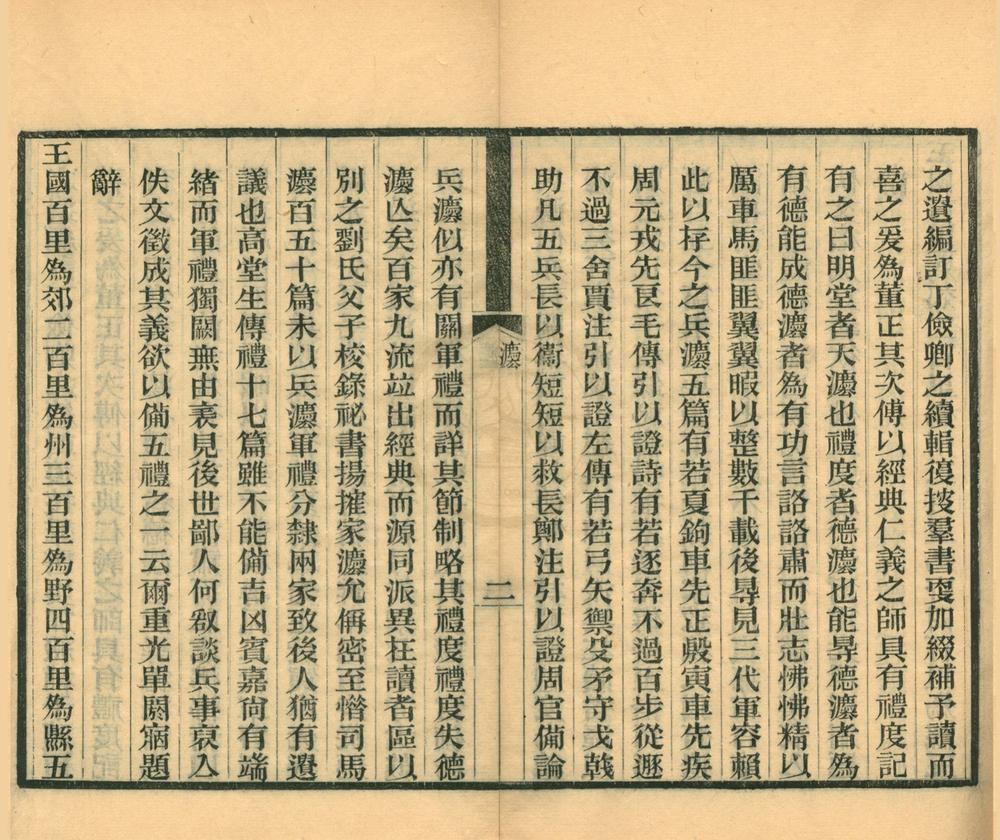 之遺編訂丁儉卿之續輯復挍羣書更加綴補予讀而
喜之爰為董正其次傅以經典仁義之師具有禮度記
有之曰明堂者天灋也禮度者德灋也能㝵德灋者為
有德能成德灋者為有功言詻詻肅而壯志怫怫精以
厲車馬匪匪翼翼暇以整數千載後㝵見三代軍容賴
此以存今之兵灋五篇有若夏鉤車先正殷寅車先疾
周元戎先良毛傳引以證詩有若逐奔不過百步從遯
不過三舍賈注引以證左傳有若弓矢禦殳矛守戈戟
助凡五兵長以衞短短以救長鄭注引以證周官備論
灋
二
兵灋似亦有關軍禮而詳其節制略其禮度禮度失德
灋亾矣百家九流竝出經典而源同派異在讀者區以
別之劉氏父子校錄祕書揚搉家灋允偁密至憯司馬
灋百五十篇未以兵灋軍禮分隸兩家致後人猶有遺
議也高堂生傳禮十七篇雖不能備吉凶賓嘉尙有端
緒而軍禮獨闕無由袤見後世鄙人何叙談兵事裒入
佚文徵成其義欲以備五禮之一云爾重光單閼寎題
辭
王國百里為郊二百里為州三百里為野四百里為縣五